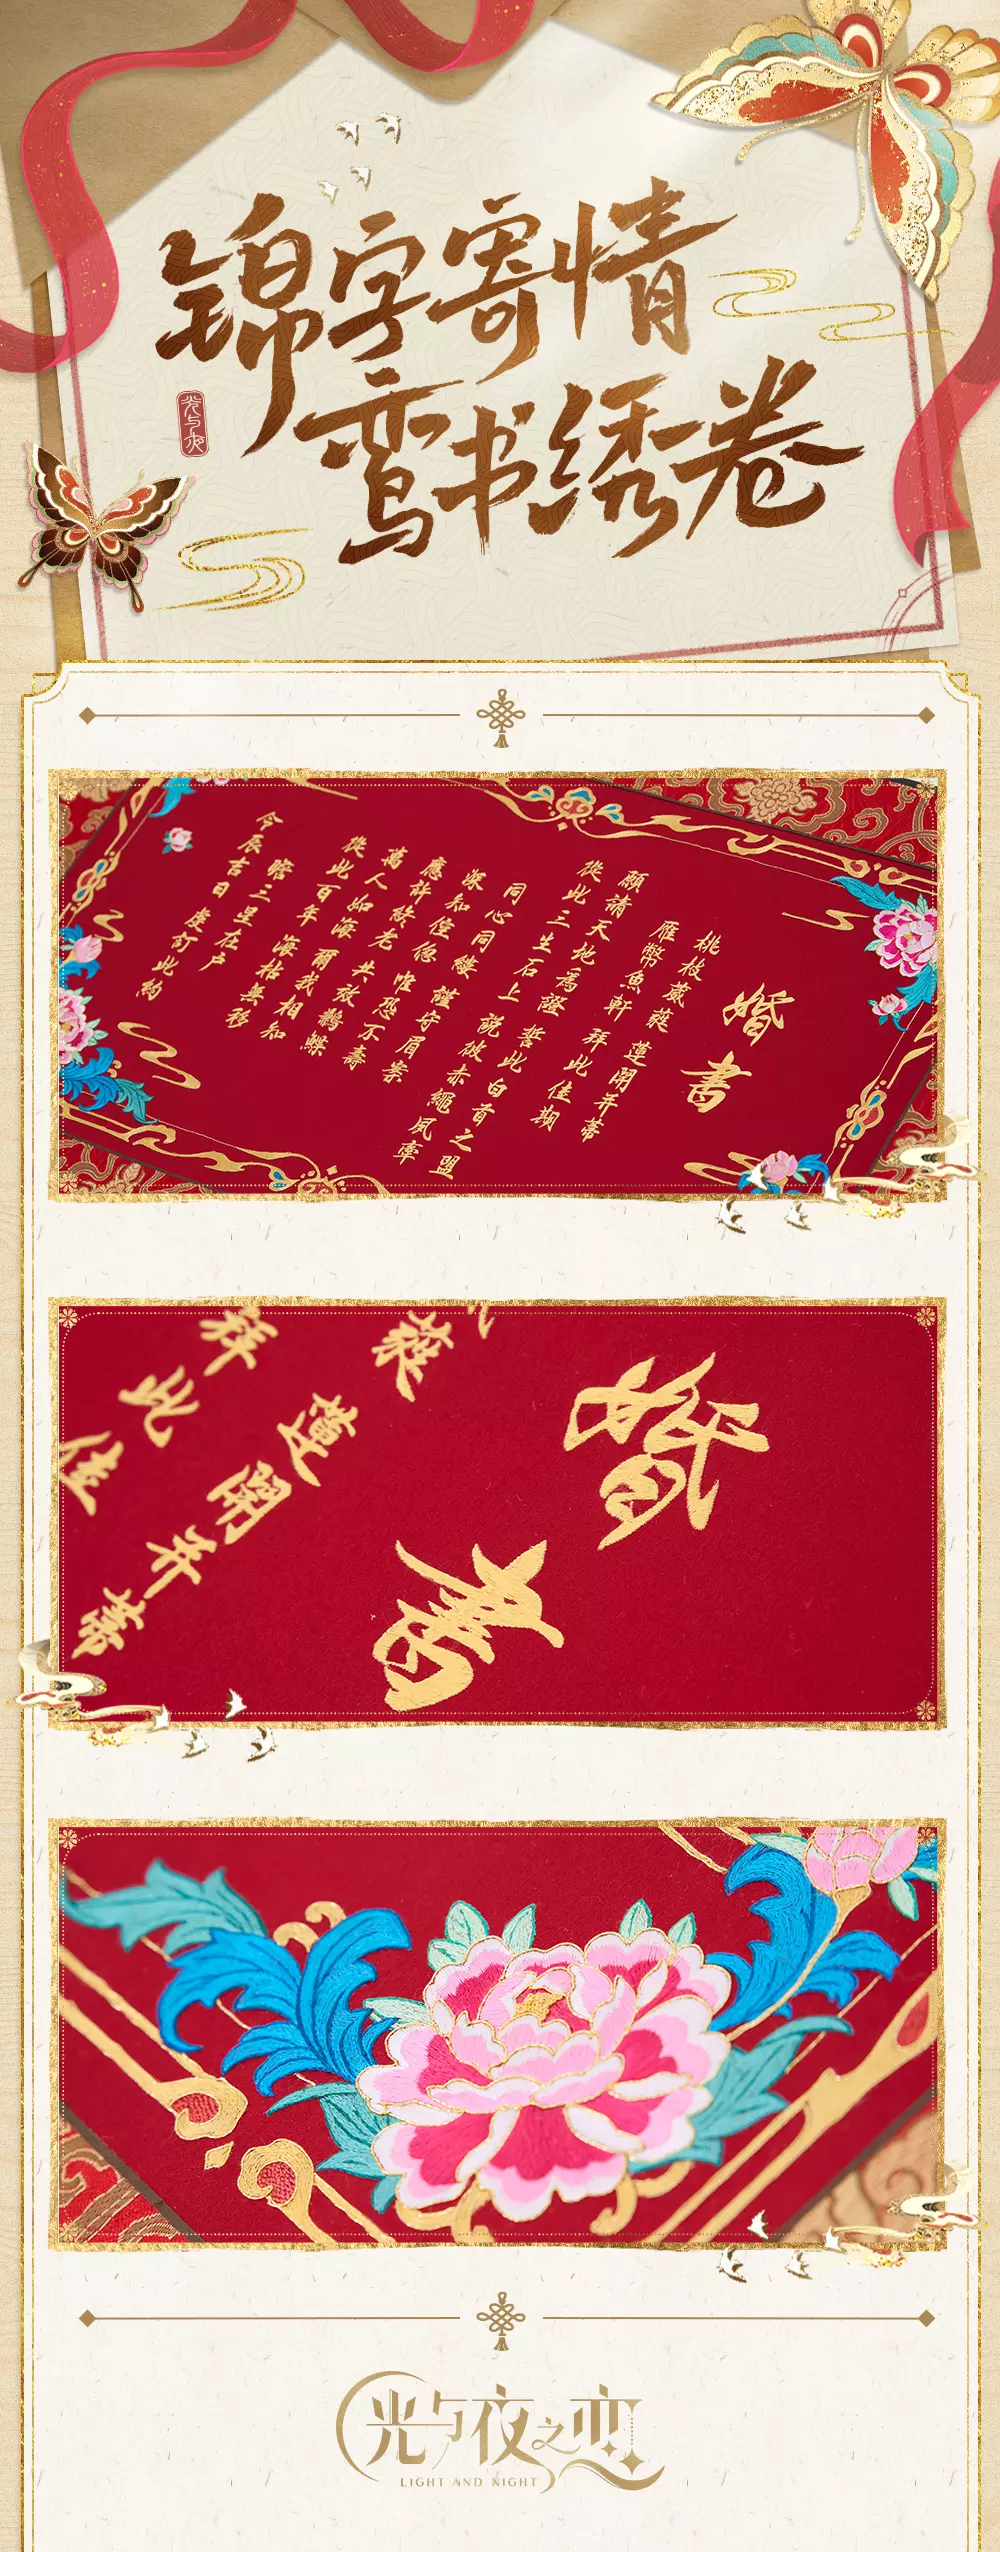 锦字寄情
鸾书绣卷
光与夜
婚書
桃枝葳蕤 蓮開并蒂
雁幣魚軒 拜此佳期
願請天地為證 誓此白首之盟
從此三生石上 說彼赤繩夙牽
同心同縷 謹守眉案
深知 惟恐不壽
應許終老 共效鶼鰈
萬人如海 爾我相知
從此百年 海枯無移
瞻三星在户
今辰吉日 虔訂此約
婚書
蕤 蓮開并蒂
拜此佳
光与夜之恋
LIGHT AND NIGHT